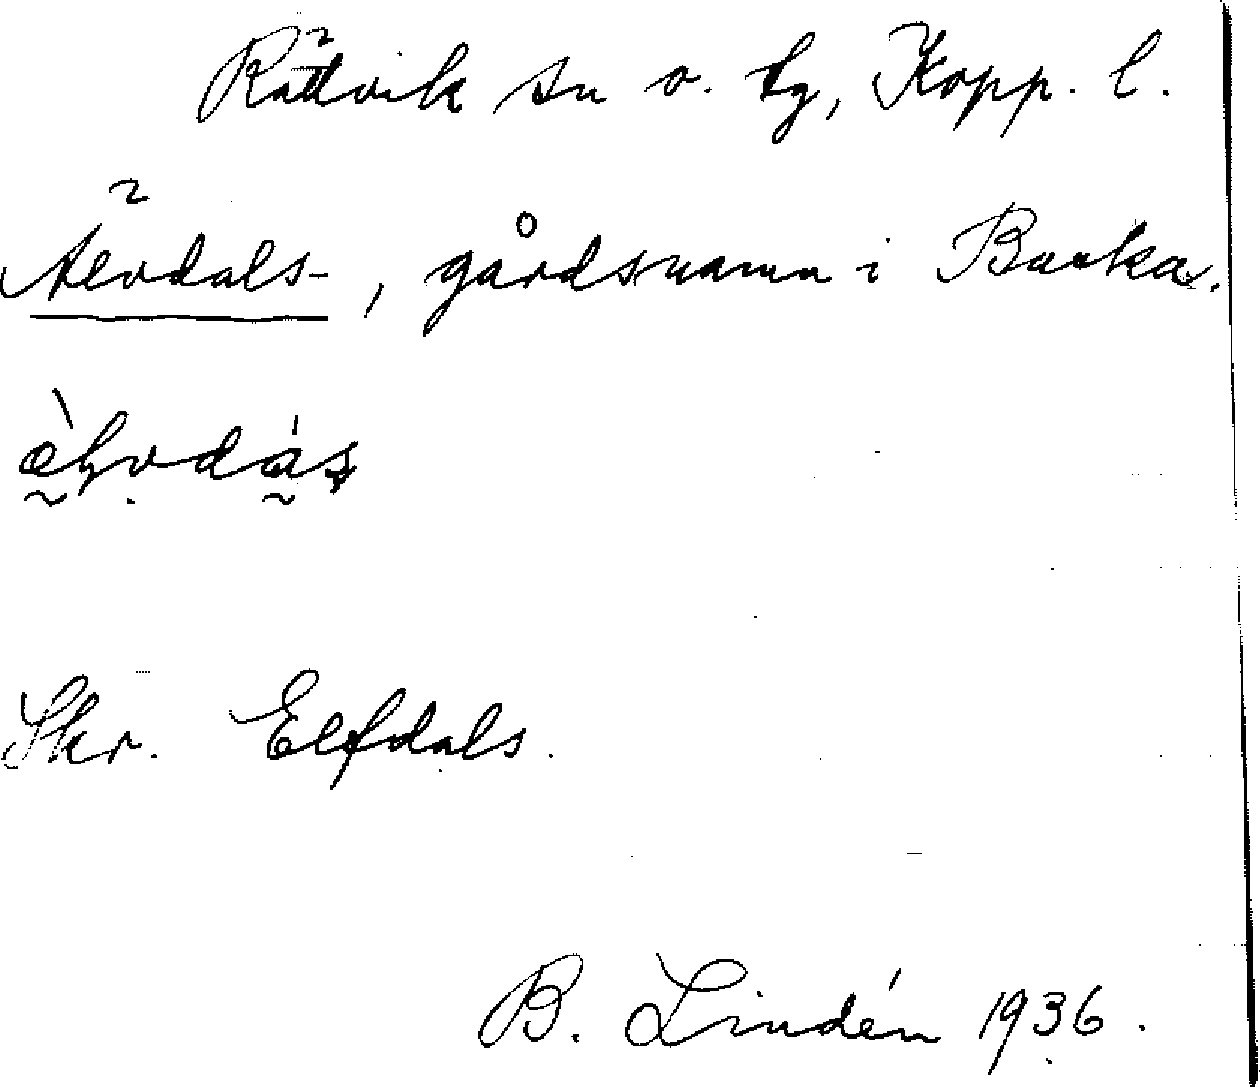 Rättvik sn o. tg, Kopp. l.
Älvdals-, gårdsnamn i Backa.
Skr. Elfdals.
B. Lindén 1936.